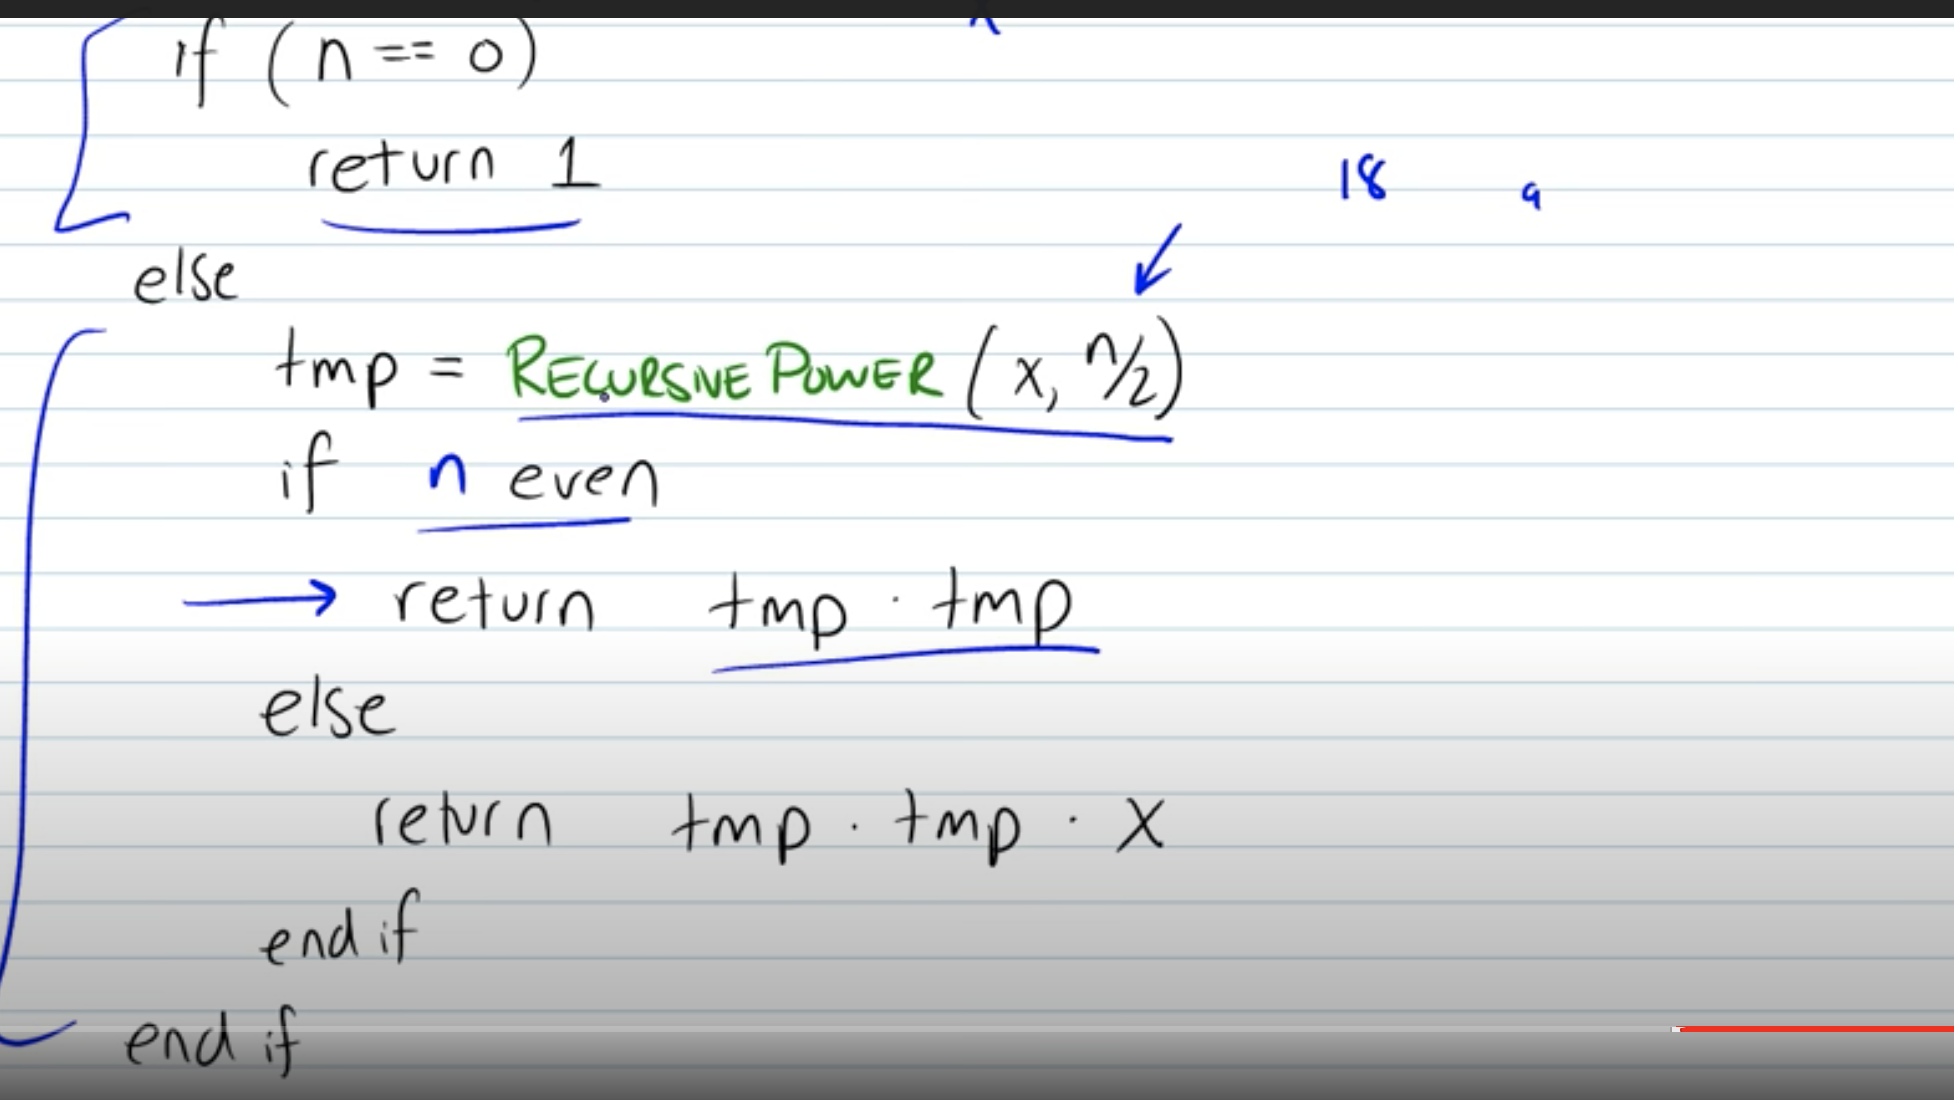 if ( n == 0 )
return 1
18 9
else
tmp = RECURSIVE POWER ( x, n/2 )
if n even
→ return tmp · tmp
else
return tmp · tmp · x
end if
end if